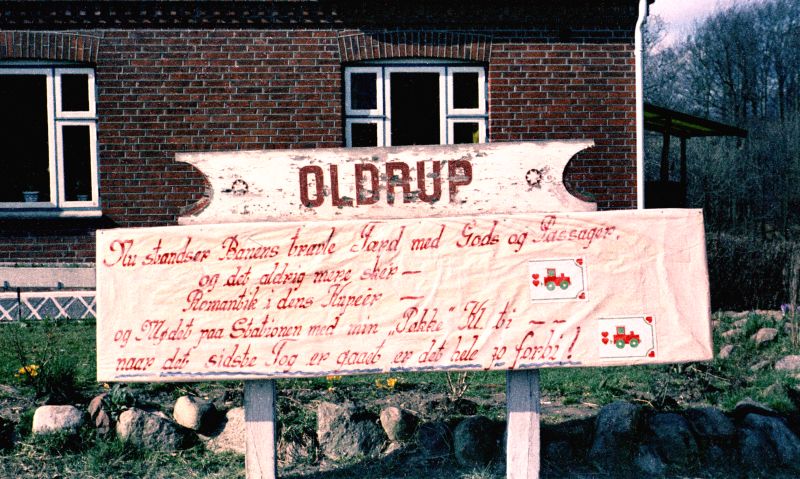 OLDRUP
Nu standser Banens travle Færd med Gods og Passager,
og det aldrig mere sker —
Romantik i dens Kupéer —
og Mødet paa Stationen med min „Pakke" Kl. ti — —
naar det sidste Tog er gaaet er det hele jo forbi!